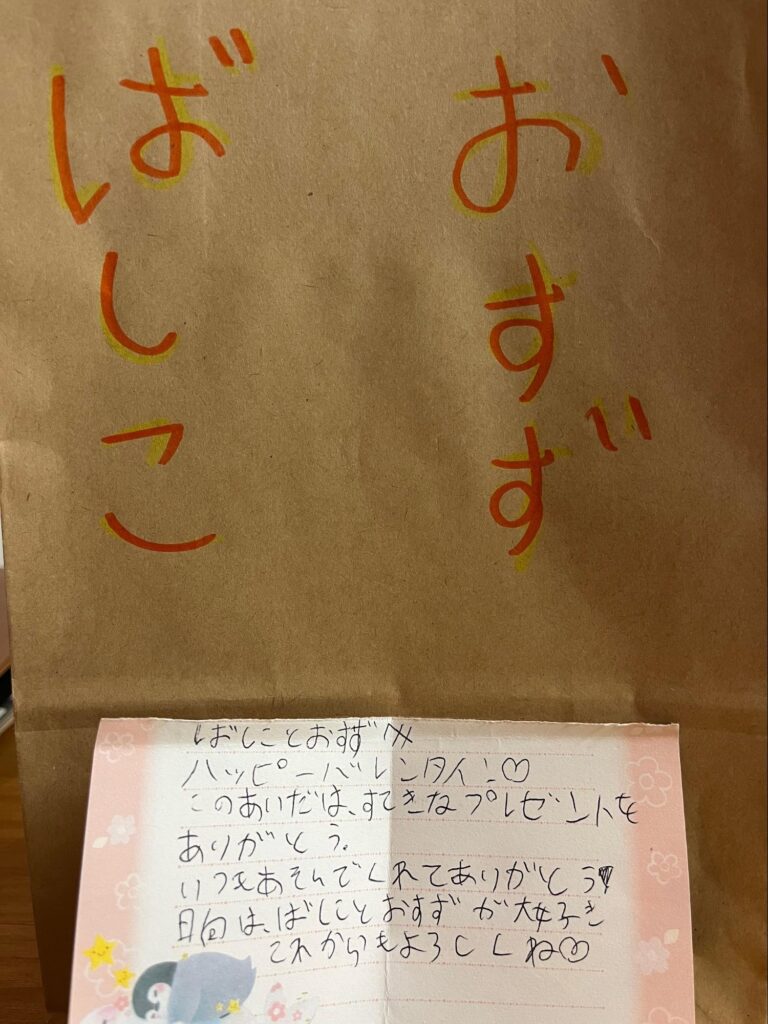 おすず
ばしこ
ばしことおすずへ
ハッピーバレンタイン♡
このあいだは、すてきなプレゼントを
ありがとう。
いつもあそんでくれてありがとう♥
日向は、ばしことおすずが大好き
これからもよろしくね♡